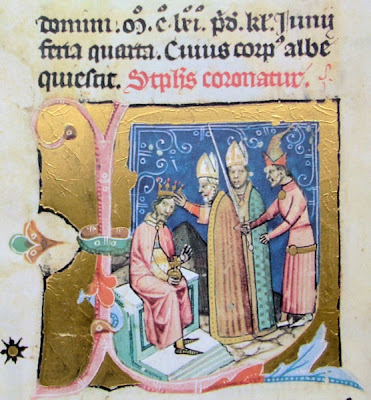 domini. M̊. C̊. lxi. p̊d. kl̄. Junij
feria quarta. Cuius corpꝰ albe
quiescit. Stph̅s coronatur.